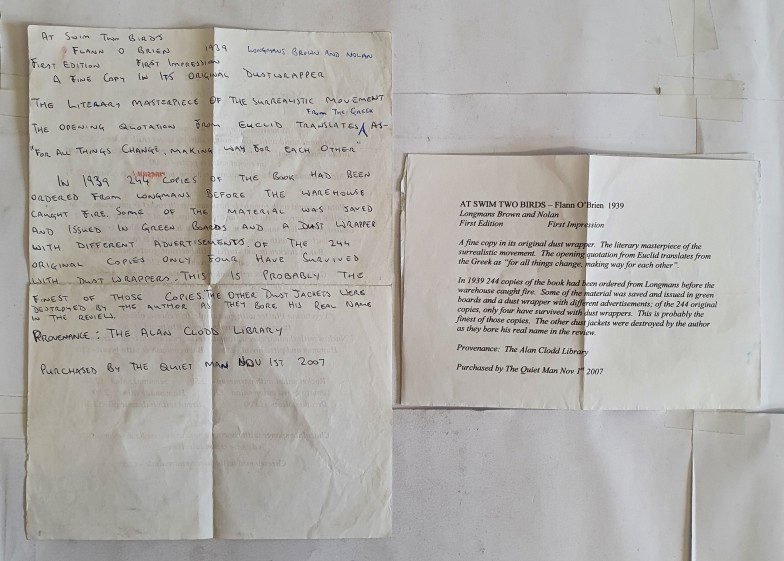 AT SWIM TWO BIRDS
FLANN O BRIEN 1939 LONGMANS BROWN AND NOLAN
FIRST EDITION FIRST IMPRESSION
A FINE COPY IN ITS ORIGINAL DUSTWRAPPER
THE LITERARY MASTERPIECE OF THE SURREALISTIC MOVEMENT
FROM THE GREEK
THE OPENING QUOTATION FROM EUCLID TRANSLATES AS-
"FOR ALL THINGS CHANGE, MAKING WAY FOR EACH OTHER"
IN 1939 244 COPIES OF THE BOOK HAD BEEN
ORDERED FROM LONGMANS BEFORE THE WAREHOUSE
CAUGHT FIRE. SOME OF THE MATERIAL WAS SAVED
AND ISSUED IN GREEN BOARDS AND A DUST WRAPPER
WITH DIFFERENT ADVERTISEMENTS. OF THE 244
ORIGINAL COPIES ONLY FOUR HAVE SURVIVED
WITH DUST WRAPPERS. THIS IS PROBABLY THE
FINEST OF THOSE COPIES. THE OTHER DUST JACKETS WERE
DESTROYED BY THE AUTHOR AS THEY BORE HIS REAL NAME
IN THE REVIEW.
PROVENANCE: THE ALAN CLODD LIBRARY
PURCHASED BY THE QUIET MAN NOV 1ST 2007
AT SWIM TWO BIRDS – Flann O'Brien 1939
Longmans Brown and Nolan
First Edition First Impression
A fine copy in its original dust wrapper. The literary masterpiece of the
surrealistic movement. The opening quotation from Euclid translates from
the Greek as "for all things change, making way for each other".
In 1939 244 copies of the book had been ordered from Longmans before the
warehouse caught fire. Some of the material was saved and issued in green
boards and a dust wrapper with different advertisements; of the 244 original
copies, only four have survived with dust wrappers. This is probably the
finest of those copies. The other dust jackets were destroyed by the author
as they bore his real name in the review.
Provenance: The Alan Clodd Library
Purchased by The Quiet Man Nov 1st 2007